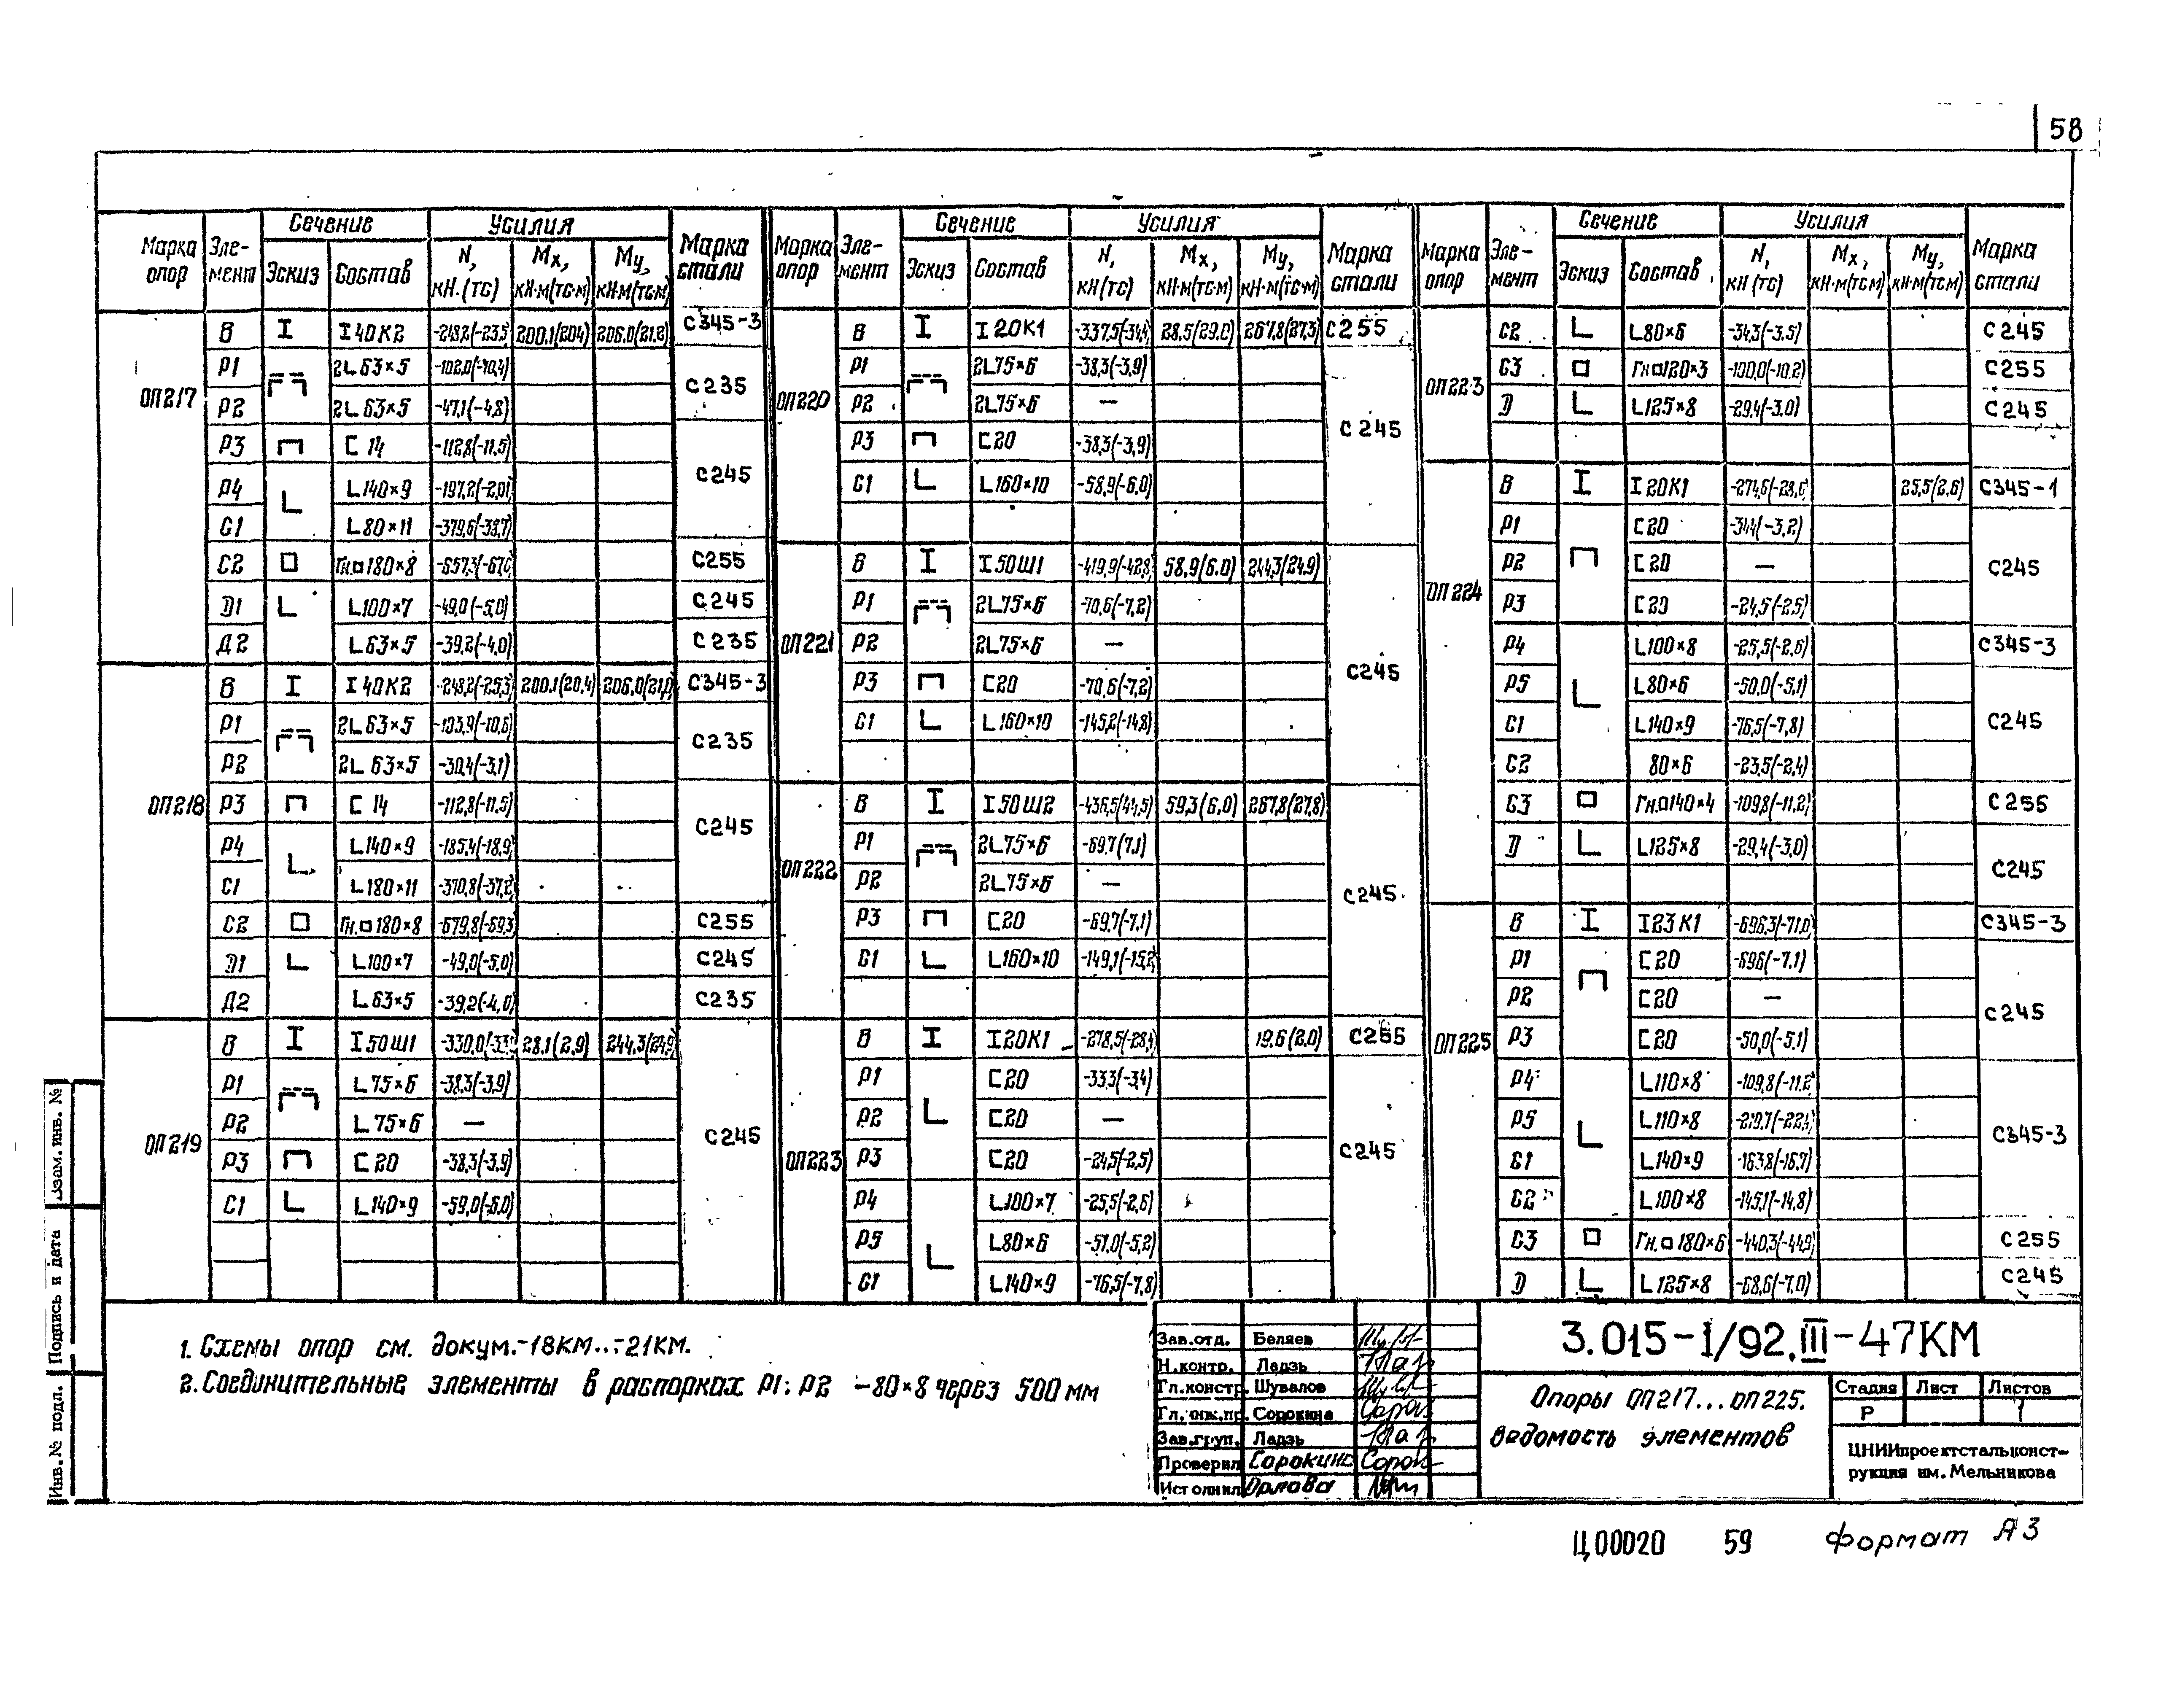 58
Марка опор | Эле-мент | Сечение | Усилия | Марка стали
Эскиз | Состав | N, кН.(тс) | Mx, кН·м(тс·м) | My, кН·м(тс·м)
ОП217
В | I 40К2 | -248,2(-23,5 | 200,1(204) | 206,0(21.2) | С345-3
Р1 | 2L 63×5 | -102,0(-10,4) | С235
Р2 | 2L 63×5 | -47,1(-4,8)
Р3 | [ 14 | -112,8(-11,5) | С245
Р4 | L140×9 | -197,2(-2,01
С1 | L80×11 | -379,6(-38,7)
С2 | Гн.□180×8 | -657,3(-67,0 | С255
Д1 | L100×7 | -49,0(-5,0) | С245
Д2 | L63×5 | -39,2(-4,0) | С235
ОП218
В | I 40К2 | -248,2(-25,3 | 200,1(20,4) | 206,0(21,0) | С345-3
Р1 | 2L 63×5 | -103,9(-10,6) | С235
Р2 | 2L 63×5 | -30,4(-3,1)
Р3 | [ 14 | -112,8(-11,5) | С245
Р4 | L140×9 | -185,4(-18,9
С1 | L180×11 | -370,8(-37,2
С2 | Гн.□180×8 | -679,8(-69,3 | С255
Д1 | L100×7 | -49,0(-5,0) | С245
Д2 | L63×5 | -39,2(-4,0) | С235
ОП219
В | I 50Ш1 | -330,0(-33 | 28,1(2,9) | 244,3(24,9) | С245
Р1 | L75×6 | -38,3(-3,9)
Р2 | L75×6 | —
Р3 | [ 20 | -38,3(-3,9)
С1 | L140×9 | -59,0(-6,0)
Марка опор | Эле-мент | Сечение | Усилия | Марка стали
Эскиз | Состав | N, кН(тс) | Mx, кН·м(тс·м) | My, кН·м(тс·м)
ОП220
В | I 20К1 | -337,5(-34,4 | 28,5(29.0) | 267,8(27,3) | С255
Р1 | 2L75×6 | -38,3(-3,9) | С245
Р2 | 2L75×6 | —
Р3 | [20 | -38,3(-3,9)
С1 | L160×10 | -58,9(-6,0)
ОП221
В | I 50Ш1 | -419,9(-42,8 | 58,9(6.0) | 244,3(24,9) | С245
Р1 | 2L75×6 | -70,6(-7,2)
Р2 | 2L75×6 | —
Р3 | [20 | -70,6(-7,2)
С1 | L160×10 | -145,2(-14,8)
ОП222
В | I 50Ш2 | -436,5(44,5) | 59,3(6,0) | 267,8(27,8) | С245
Р1 | 2L75×6 | -69,7(7,1)
Р2 | 2L75×6 | —
Р3 | [20 | -69,7(-7,1)
С1 | L160×10 | -149,1(-15,2
ОП223
В | I20К1 | -278,5(-28,4 | 19.6(2,0) | С255
Р1 | [20 | -33,3(-3,4) | С245
Р2 | [20 | —
Р3 | [20 | -24,5(-2,5)
Р4 | L100×7 | -25,5(-2,6)
Р5 | L80×6 | -51,0(-5,2)
С1 | L140×9 | -76,5(-7,8)
Марка опор | Эле-мент | Сечение | Усилия | Марка стали
Эскиз | Состав | N, кН(тс) | Mx, кН·м(тс·м) | My, кН·м(тс·м)
ОП223
С2 | L80×6 | -34,3(-3,5) | С245
С3 | Гн□120×3 | -100,0(-10,2) | С255
Д | L125×8 | -29,4(-3,0) | С245
ОП224
В | I 20К1 | -274,6(-28,0 | 25,5(2,6) | С345-1
Р1 | [20 | -34,4(-3,2) | С245
Р2 | [20 | —
Р3 | [20 | -24,5(-2,5)
Р4 | L100×8 | -25,5(-2,6) | С345-3
Р5 | L80×6 | -50,0(-5,1) | С245
С1 | L140×9 | -76,5(-7,8)
С2 | 80×6 | -23,5(-2,4)
С3 | Гн.□140×4 | -109,8(-11,2) | С255
Д | L125×8 | -29,4(-3,0) | С245
ОП225
В | I23К1 | -696,3(-71,0 | С345-3
Р1 | [20 | -69,6(-7,1) | С245
Р2 | [20 | —
Р3 | [20 | -50,0(-5,1)
Р4 | L110×8 | -109,8(-11,2 | С345-3
Р5 | L110×8 | -219,7(-22,4
С1 | L140×9 | -163,8(-16,7)
С2 | L100×8 | -145,1(-14,8)
С3 | Гн.□180×6 | -440,3(-44,9 | С255
Д | L125×8 | -68,6(-7,0) | С245
1. Схемы опор см. докум.-18КМ..-21КМ.
2. Соединительные элементы в распорках Р1; Р2 -80×8 через 500 мм
Взам. инв. №
Подпись и дата
Инв. № подл.
Зав.отд. Беляев
Н.контр. Ладзь
Гл.констр. Шувалов
Гл.инж.пр. Сорокина
Зав.груп. Ладзь
Проверил Сорокина
Исполнил Орлова
3.015-1/92.III-47КМ
Опоры ОП217...ОП225.
Ведомость элементов
Стадия | Лист | Листов
Р | 1
ЦНИИпроектстальконст-
рукция им. Мельникова
Ц00020 59 Формат А3